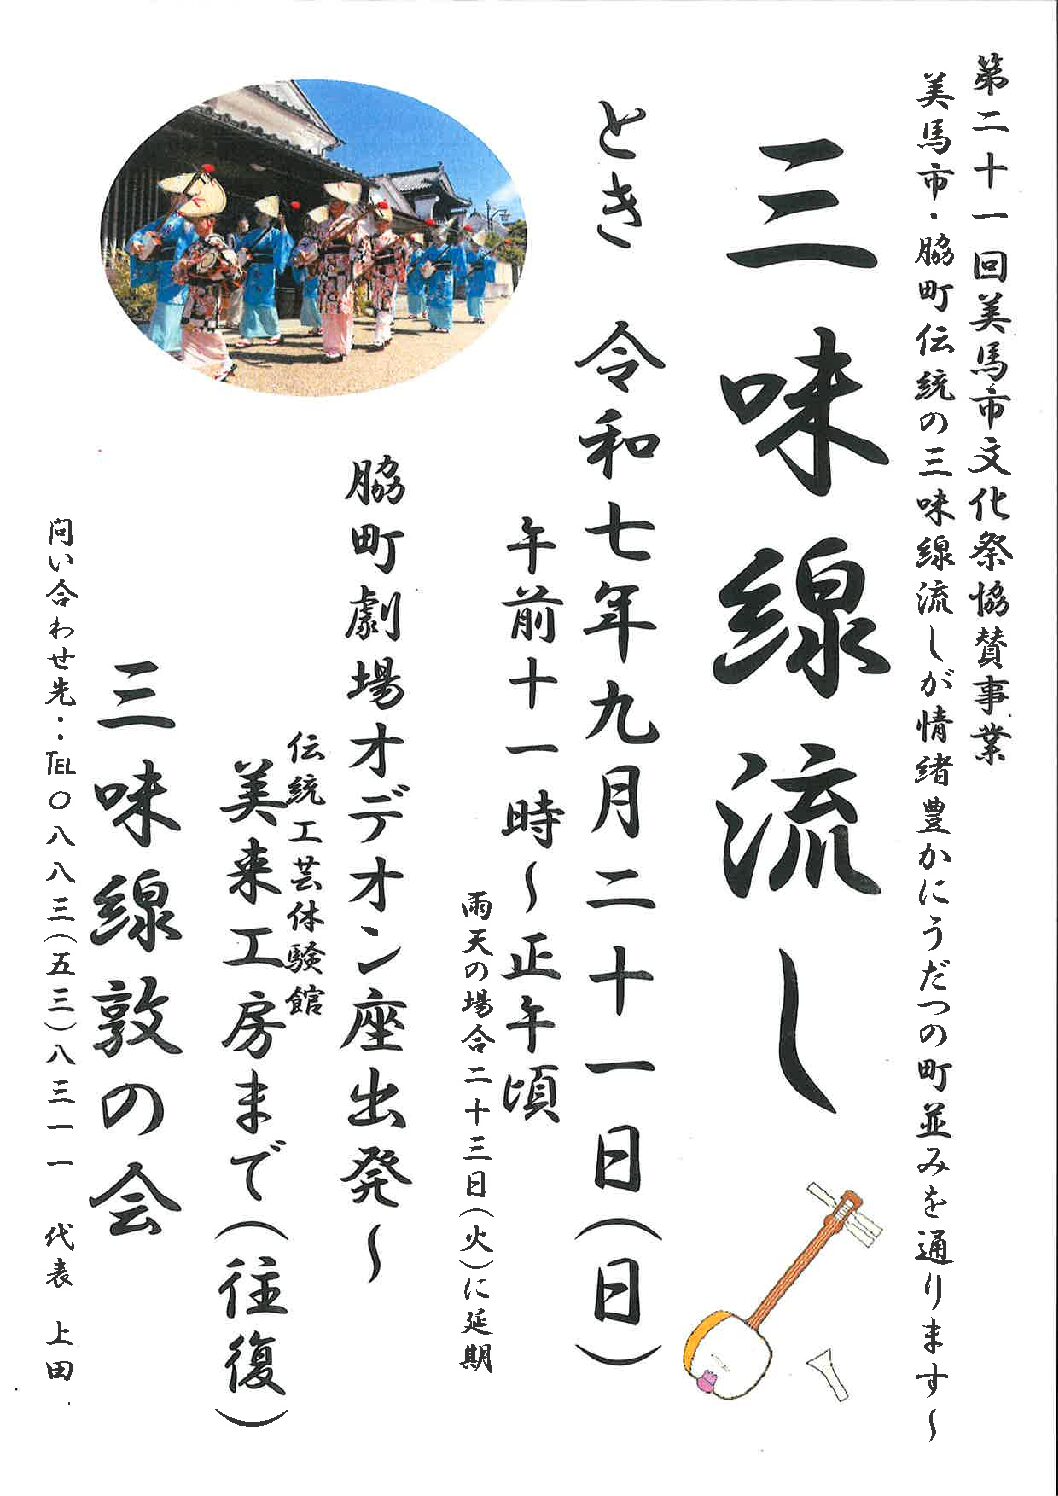 第二十一回美馬市文化祭協賛事業
美馬市・脇町伝統の三味線流しが情緒豊かにうだつの町並みを通ります〜
三味線流し
とき 令和七年九月二十一日(日)
午前十一時〜正午頃
雨天の場合二十三日(火)に延期
脇町劇場オデオン座出発〜
伝統工芸体験館
美来工房まで(往復)
三味線敦の会
問い合わせ先‥TEL〇八八三(五三)八三一一 代表 上田